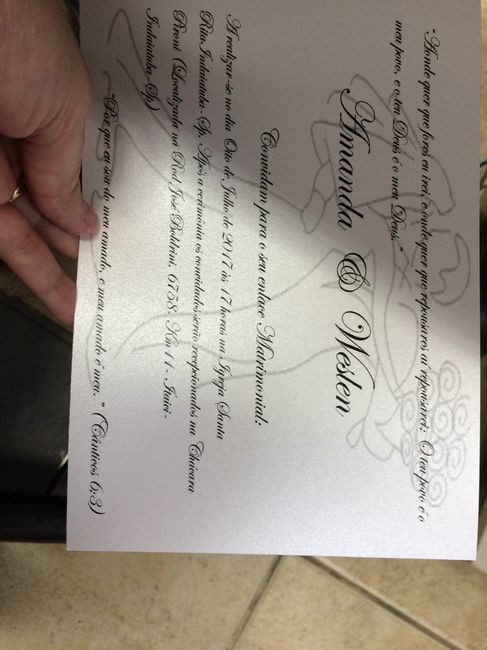 "Aonde quer que fores eu irei, e onde quer que repousares ai repousarei; O teu povo é o
meu povo, e o teu Deus é o meu Deus."
Amanda & Weslen
Convidam para o seu enlace Matrimonial:
A realizar-se no dia Oito de Julho de 2017 às 17 horas na Igreja Santa
Rita Indaiatuba-Sp. Após a cerimônia os convidados serão recepcionados na Chácara
Peroni (Localizada na Rod. José Boldrini, 6758 - Km 11 - Itaici -
Indaiatuba-Sp)
"Por que eu sou do meu amado, e meu amado é meu." (Cânticos 6:3)